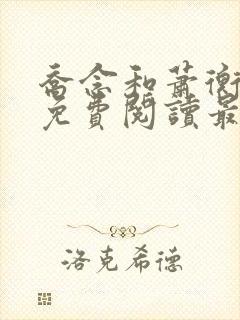 喬念和蕭衡
免費閱讀最
洛克希德